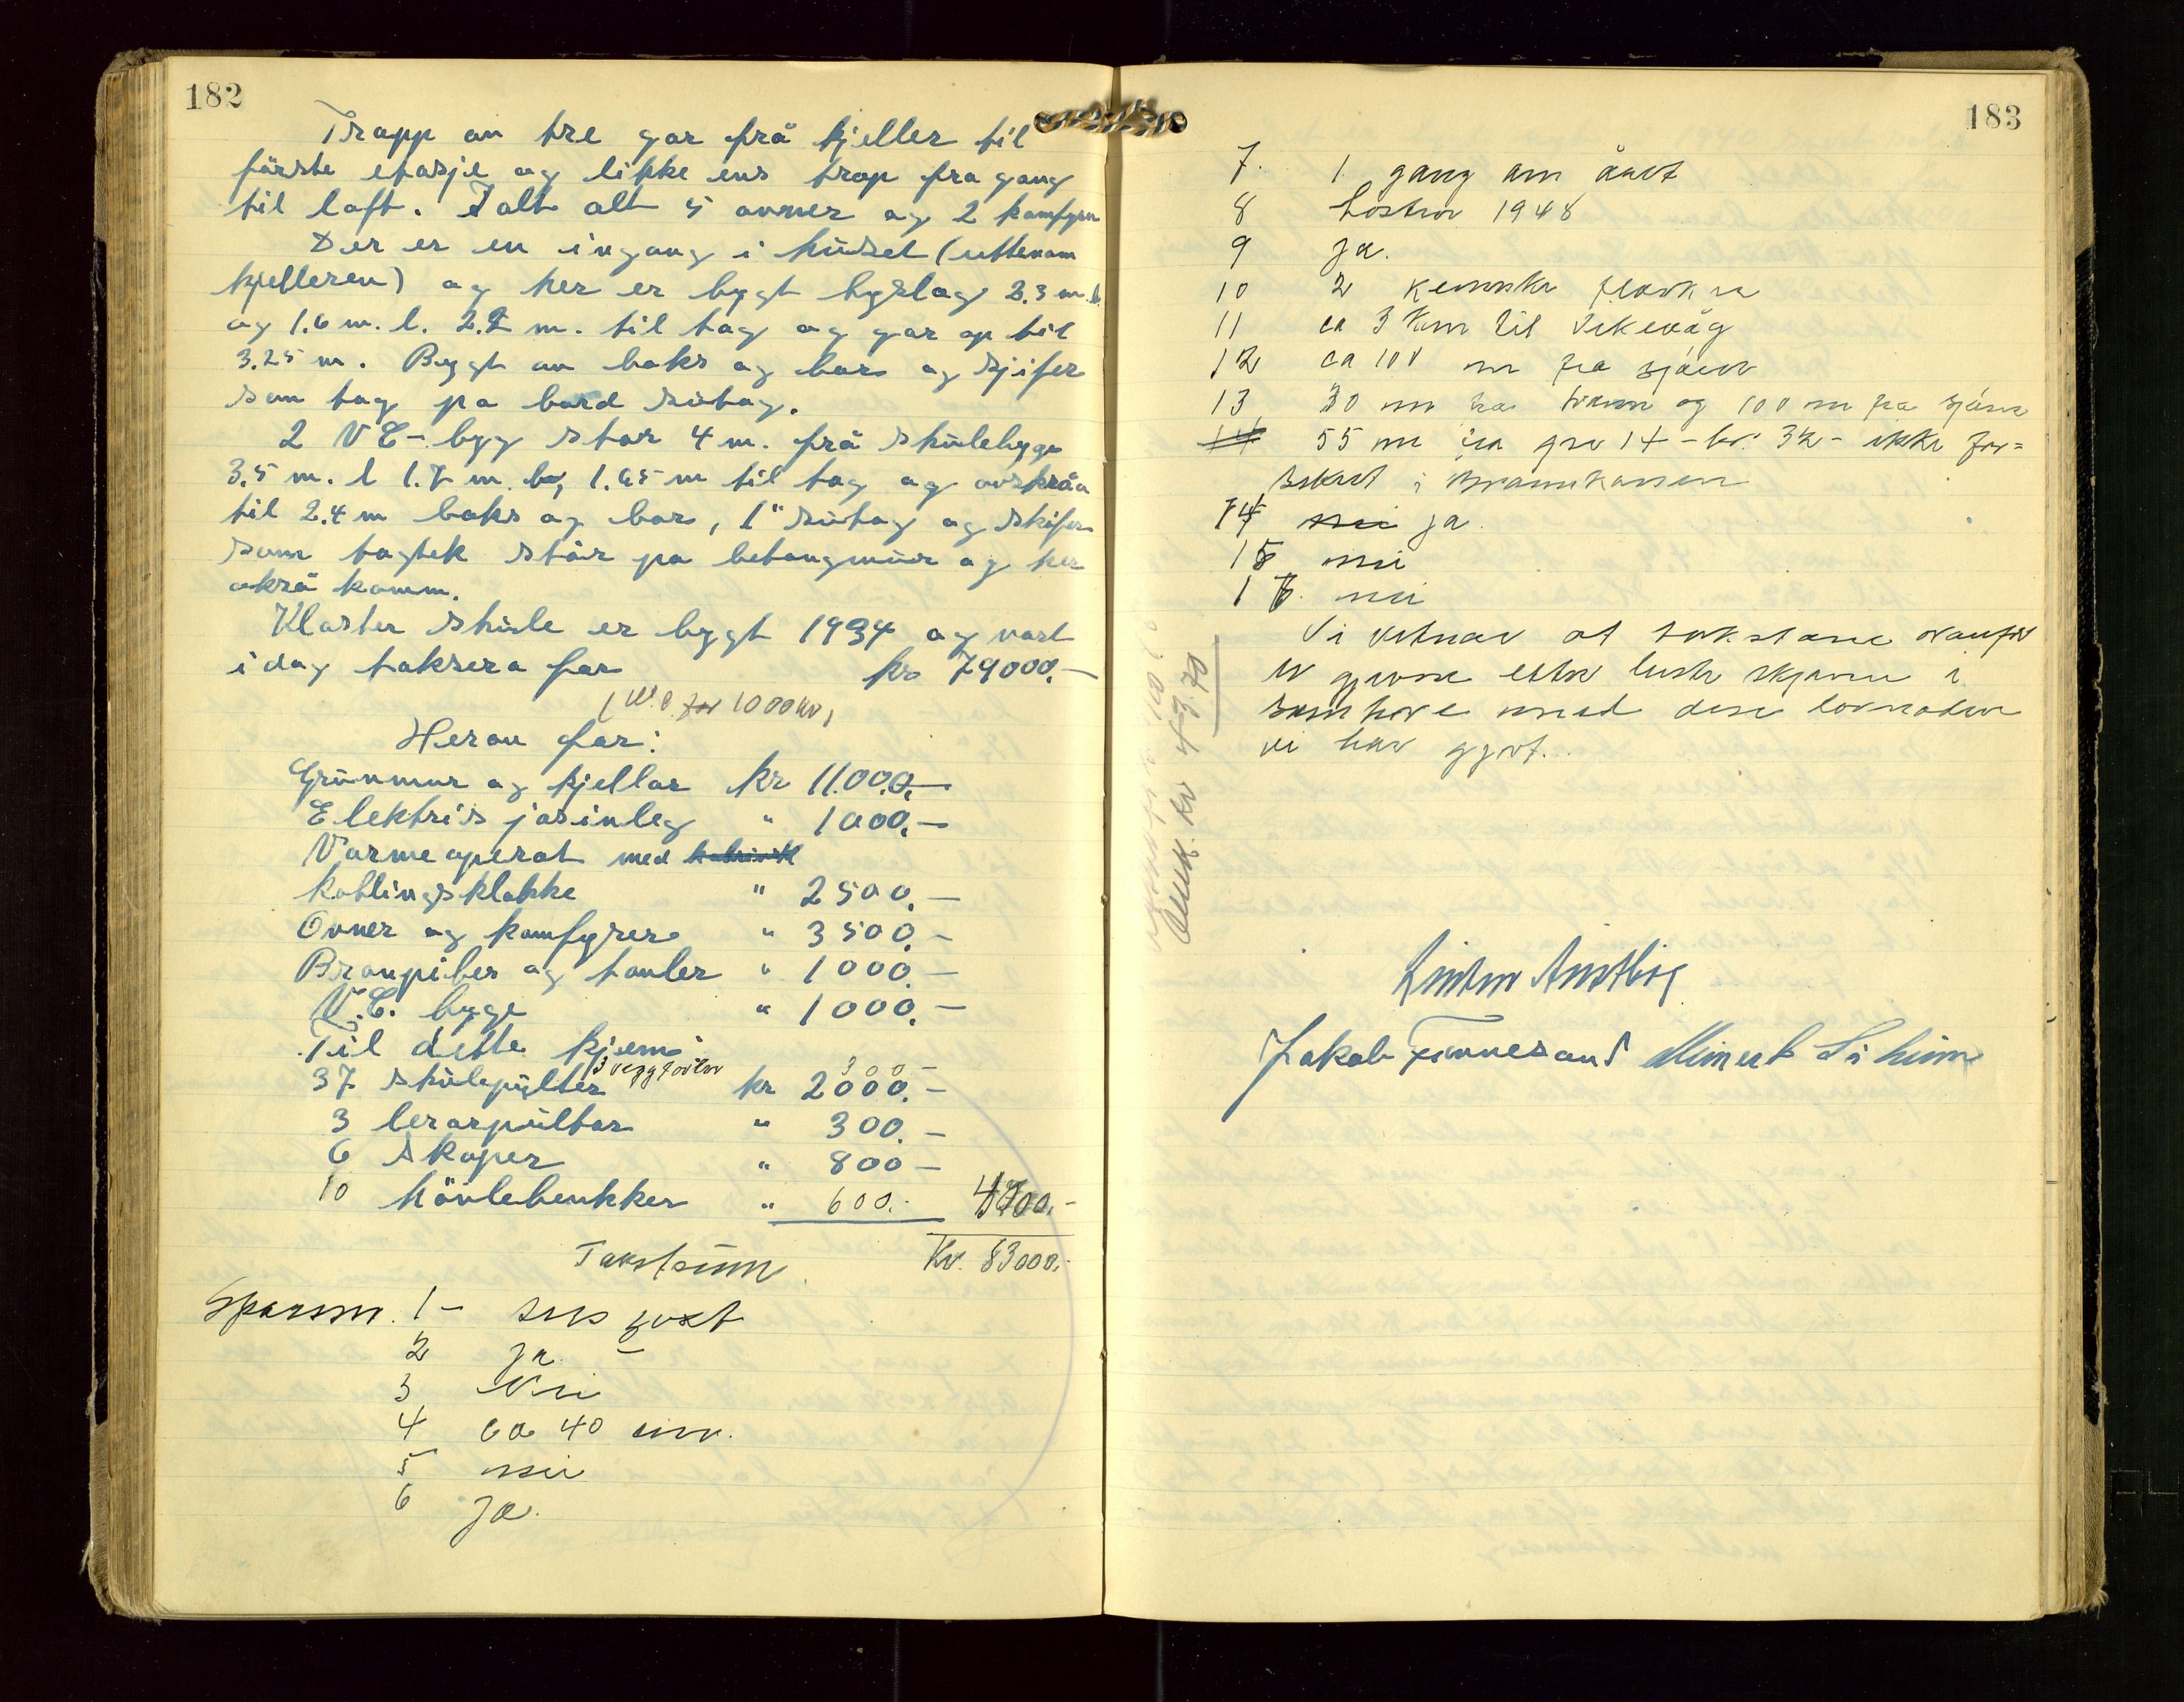 182
Trapp an tre gar frå kjeller til
förste etasje og likke ens trap fra gang
til loft. I alt alt 5 ovner og 2 komfyrer
Der er en ingang i huset (uttenom
kjelleren) og her er bygt byslag 2.3 m. b.
og 1.6 m. l. 2.2 m. til tag og gar op til
3.25 m. Bygt av boks og bor og sjifer
som tag pa bord sutag.
2 V C- byg star 4 m. frå skulebyge
3.5 m. l 1.7 m. b, 1.65 m til tag og avskråa
til 2.4 m boks og bor, 1" sutag og skifer
som tagtek står pa betongmur og her
okrå komm.
Kloster skule er bygt 1934 og vart
idag taksera for kr 79000.-
(W.C for 1000 kr)
Herav for:
Grunmur og kjellar kr 11.000,-
Elektris josinleg " 1000,-
Varmeaperat med
koblingsklokke " 2500,-
Ovner og komfyrer " 3500,-
Branpiber og tavler " 1000,-
V.C. byge " 1000,-
Til dette kjem:
3 veggtavler 300-
37 skulepulter kr 2000.-
3 lerarpultar " 300.-
6 skaper " 800-
10 hövlebenkker " 600.- 4700.-
Takstsum Kr. 83000.-
Spørsm. 1-
2 Ja.
3 Nei
4 ca 40
5 nei
6 Ja.
183
7. 1 gang om året
8 hostren 1948
9 Ja.
10 2 kemiske
11 ca 3 km til Vikevåg
12 ca 100 m fra sjøen
13 30 m fra og 100 m fra sjøen
14 55 m fra gnr 14 - br. 32 - ikke for=
sikret i Brannkassen
14 nei ja.
15 nei
16. nei
Vi vitnar at takstane ovanfor
er gjevne etter beste skjønn i
samhøve med dese lovnader
vi har gjort.
kr 43.70
Jakob Finnesand Meinert Lihim